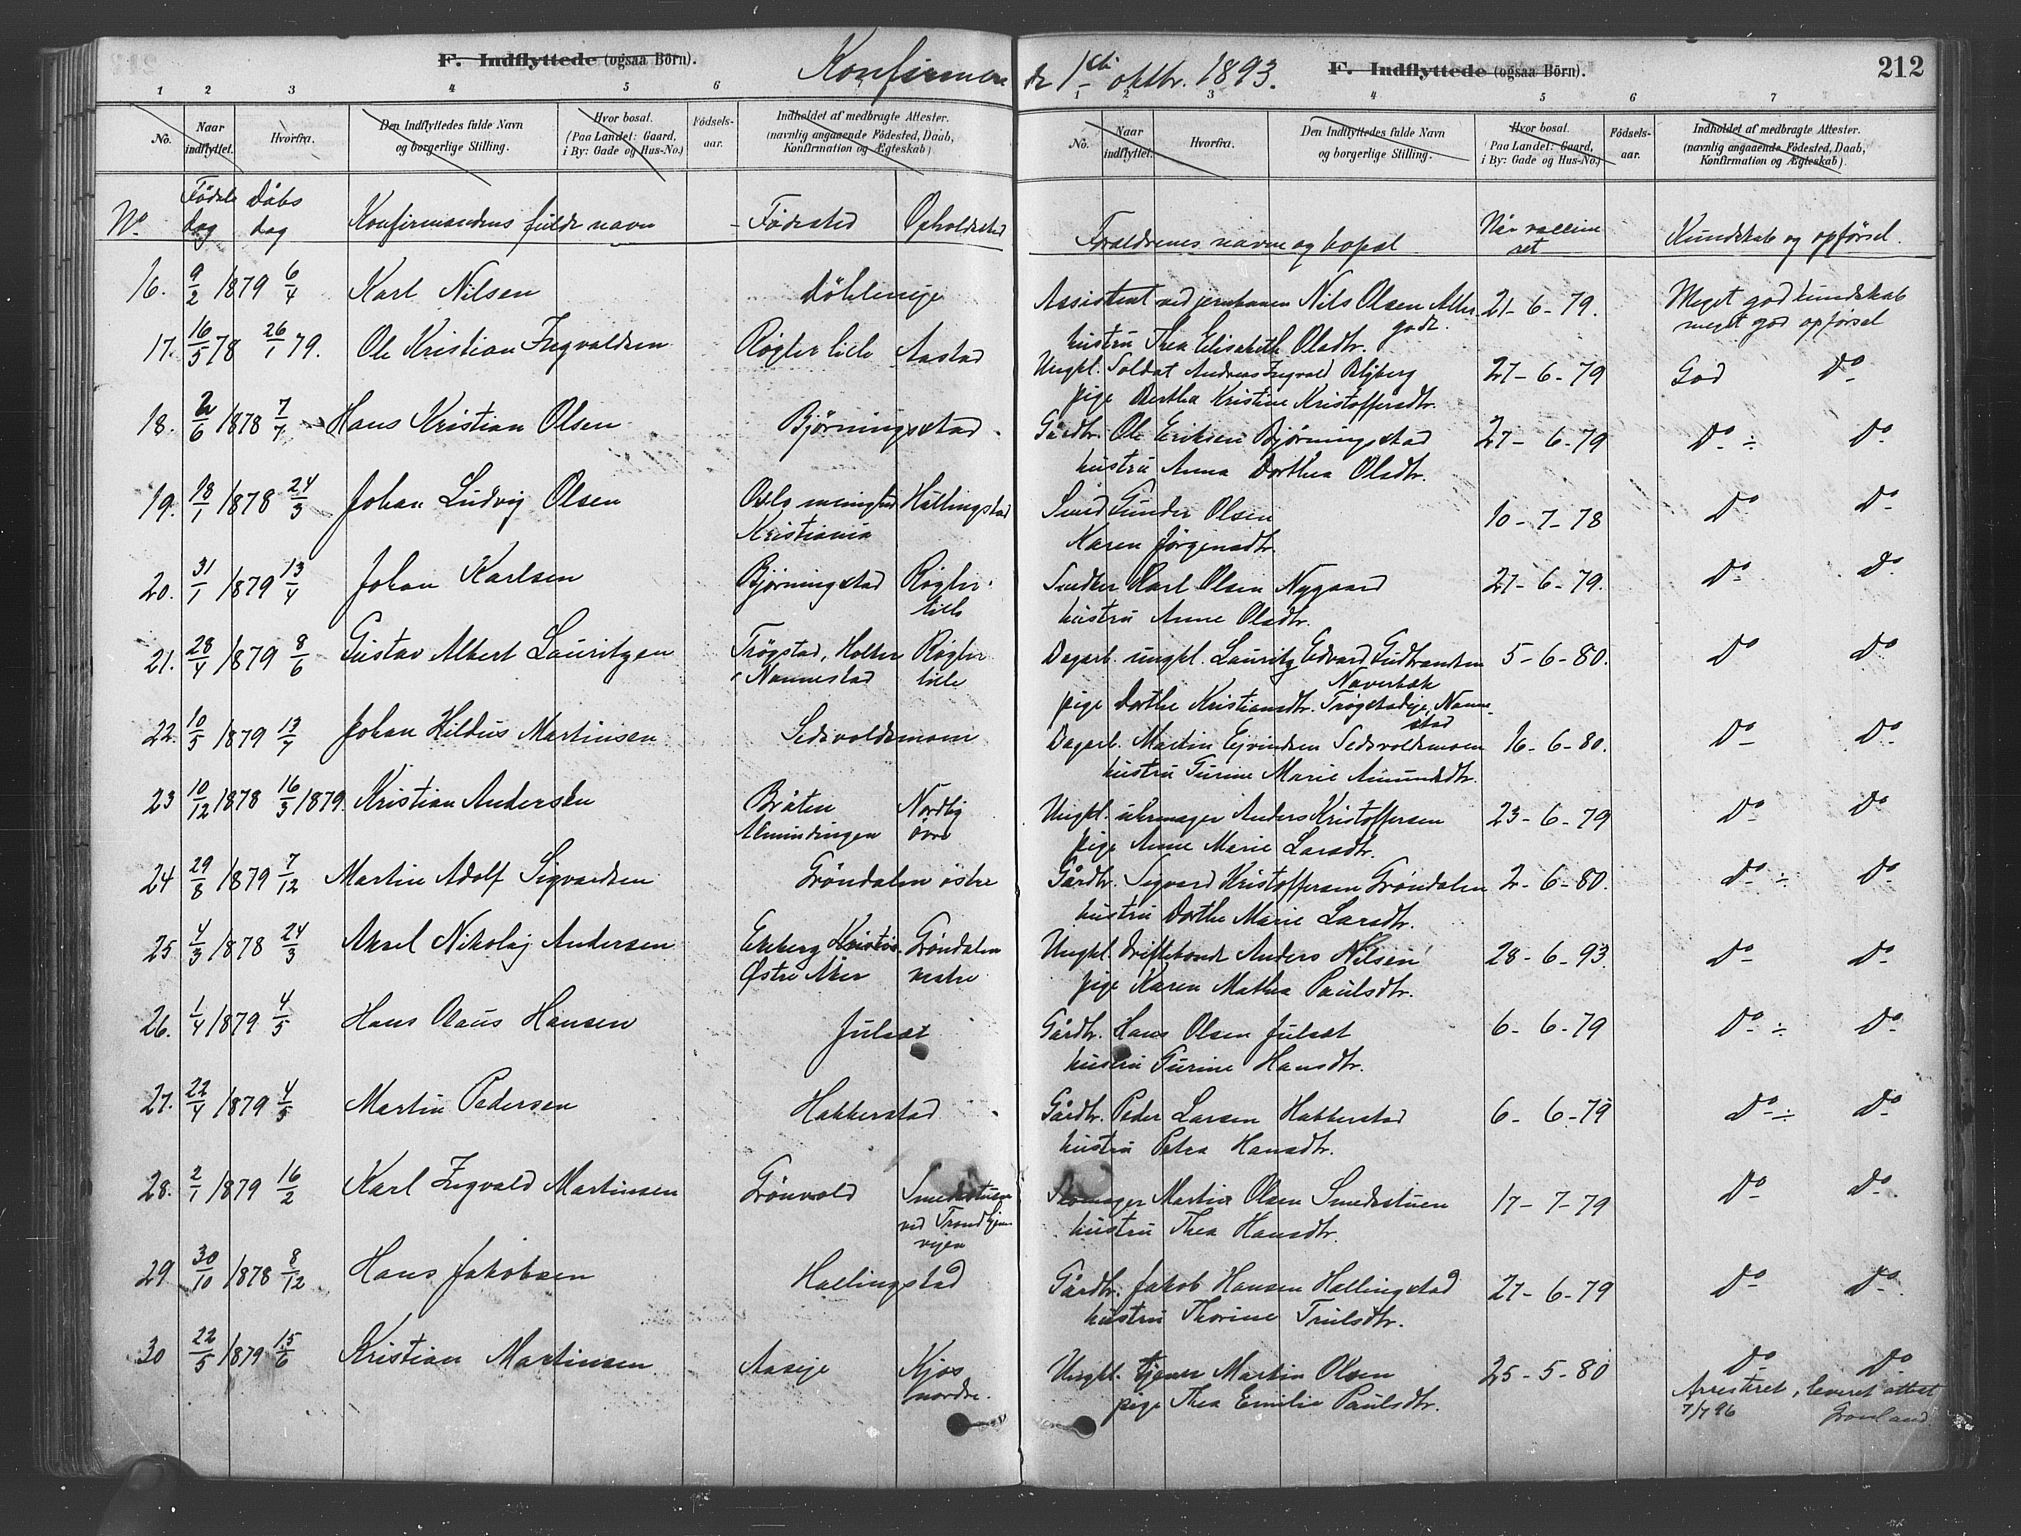 F. Indflyttede (ogsaa Börn).
Konfirmerede 1ste oktbr. 1893.
F. Indflyttede (ogsaa Börn).
212
1 2 3 4 5 6 7
No. Naar indflyttet. Hvorfra. Den Indflyttedes fulde Navn og borgerlige Stilling. Hvor bosat. (Paa Landet: Gaard, i By: Gade og Hus-No.) Fødsels-aar. Indholdet af medbragte Attester. (navnlig angaaende Födested, Daab, Konfirmation og Ægteskab).
1 2 3 4 5 6 7
No. Naar indflyttet. Hvorfra. Den Indflyttedes fulde Navn og borgerlige Stilling. Hvor bosat. (Paa Landet: Gaard, i By: Gade og Hus-No.) Födsels-aar. Indholdet af medbragte Attester. (navnlig angaaende Födested, Daab, Konfirmation og Ægteskab).
No. Födsels dag Dåbs dag Konfirmandens fulde navn Födested Opholdssted Forældrenes navn og bopæl Når vaccineret Kundskab og opførsel.
16. 9/2 1879 6/4 Karl Nilsen Döhleneje Assistent ved jernbanen Nils Olsen 21-6-79. Meget god kundskab
hustru Thea Elisabeth Olsdtr. meget god opførsel
17. 16/5 78 26/1 79. Ole Kristian Ingvaldsen Røgler lille Aastad Ungkl. Soldat Andreas Ingvald 27-6-79 God Do
pige Berthe Kristine Kristoffersdtr.
18. 2/6 1878 7/7 Hans Kristian Olsen Bjørningstad Gårdbr. Ole Eriksen Bjørningstad 27-6-79 Do ÷ Do
hustru Anna Dorthea Olsdtr.
19. 18/1 1878 24/3 Johan Ludvig Olsen Oslo menighed Hallingstad Smed Gunder Olsen 10-7-78 Do Do
Kristiania Karen Jørgensdtr.
20. 31/1 1879 13/4 Johan Karlsen Bjørningstad Røgler Snedker Karl Olsen Nygaard 27-6-79. Do Do
lille hustru Anne Olsdtr.
21. 28/4 1879 8/6 Gustav Albert Lauritzen Trøgstad, Holter Røgler Dagarb. ungkl. Lauritz Edvard Gudbrandsen 5-6-80. Do Do
i Nannestad lille Naverbæk
pige Dorthe Kristiansdtr. Trøgstadeje, Nannestad
22. 10/5 1879 13/7 Johan Hildus Martinsen Sedsvoldsmoen Dagarb. Martin Ejvindsen Sedsvoldsmoen 16-6-80. Do Do
hustru Gurine Marie Amundsdtr.
23 10/12 1878 16/3 1879. Kristian Andersen Bråten Nordby Ungkl. uhrmager Anders Kristoffersen 23-6-79 Do Do
Almindingen övre pige Anne Marie Larsdtr.
24 29/8 1879 7/12 Martin Adolf Sigvardsen Gröndalen østre Gårdbr. Segvard Kristoffersen Grøndalen 2-6-80. Do ÷ Do
hustru Dorthe Marie Larsdtr.
25 4/3 1878 24/3 Aksel Nikolaj Andersen Ekeberg Gröndalen Ungkl. driftebonde Anders Nilsen 28-6-93. Do Do
Østre Aker vestre pige Karen Mathea Paulsdtr.
26. 1/4 1879 4/5 Hans Olaus Hansen Julset Gårdbr. Hans Olsen Julset 6-6-79 Do ÷ Do
hustru Gurine Hansdtr.
27. 22/4 1879 4/5 Martin Pedersen Habberstad Gårdbr. Peder Larsen Habberstad 6-6-79 Do ÷ Do
hustru Petra Hansdtr.
28. 2/1 1879 16/2 Karl Ingvald Martinsen Grönvold Smedstuen Skomager Martin Olsen Smedstuen 17-7-79 Do Do
ved Trondhjemsvejen hustru Thea Hansdtr.
29 30/10 1878 8/12 Hans Jakobsen Hallingstad Gårdbr. Jakob Hansen Hallingstad 27-6-79 Do Do
hustru Thorine Trulsdtr.
30 22/5 1879 15/6 Kristian Martinsen Aaseje Kjos Ungkl. tjener Martin Olsen 25-5-80 Do Do
nordre. pige Thea Emilie Paulsdtr.
Arresteret, leveret attest
7/7 96 Grønland.